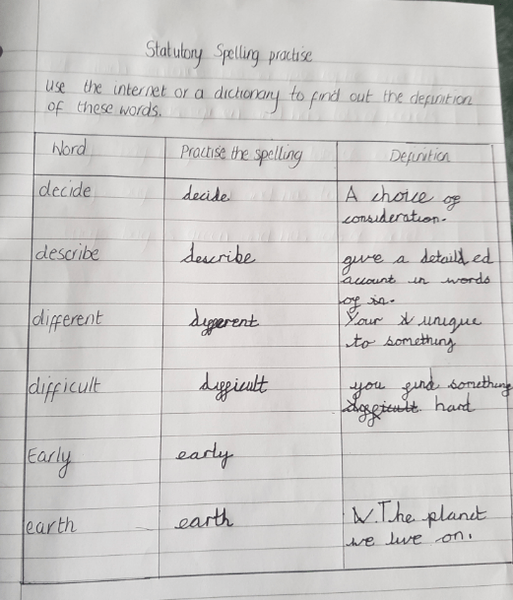 Statutory Spelling practise
use the internet or a dictionary to find out the definition
of these words.
Word Practise the spelling Definition
decide decide A choice of
consideration.
describe describe give a detaild ed
account in words
of in.
different different Your unique
to something
difficult difficult you find something
difficult hard
Early early
earth earth W.The planet
we live on.